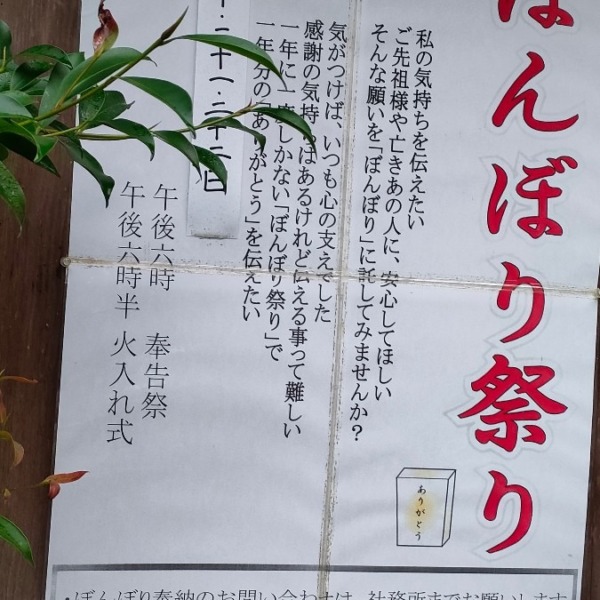 ぼんぼり祭り
私の気持ちを伝えたい
ご先祖様や亡きあの人に、安心してほしい
そんな願いを「ぼんぼり」に託してみませんか？
気がつけば、いつも心の支えでした
感謝の気持ちはあるけれど伝える事って難しい
一年に一度しかない「ぼんぼり祭り」で
一年分の「ありがとう」を伝えたい
・二十一・二十二日
午後六時　奉告祭
午後六時半　火入れ式
ありがとう
・ぼんぼり奉納のお問い合わせは、社務所までお願いします